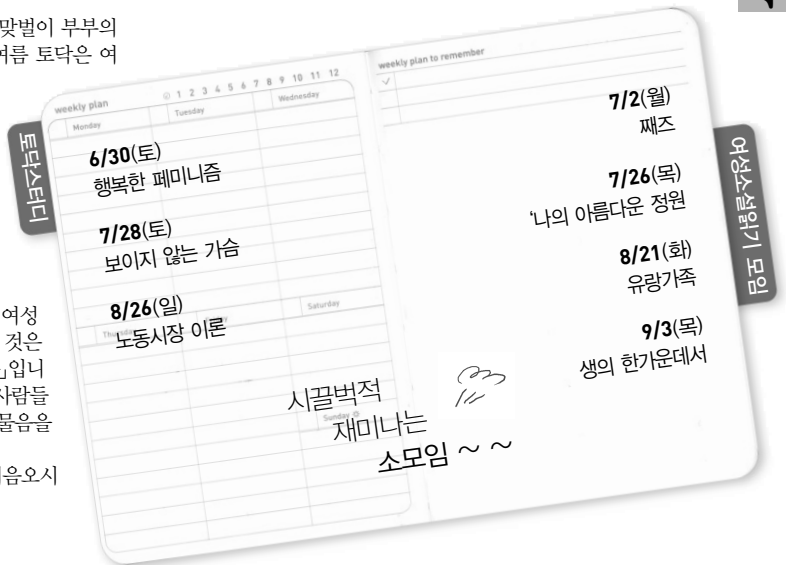 맞벌이 부부의
여름 토닥은 여
여성
것은
」입니
사람들
물음을
음오시
토닥스터디
weekly plan
1 2 3 4 5 6 7 8 9 10 11 12
Monday
Tuesday
Wednesday
6/30(토)
행복한 페미니즘
7/28(토)
보이지 않는 가슴
8/26(일)
노동시장 이론
Saturday
Sunday
weekly plan to remember
여성소설읽기 모임
7/2(월)
째즈
7/26(목)
‘나의 아름다운 정원
8/21(화)
유랑가족
9/3(목)
생의 한가운데서
시끌벅적
재미나는
소모임 ~ ~